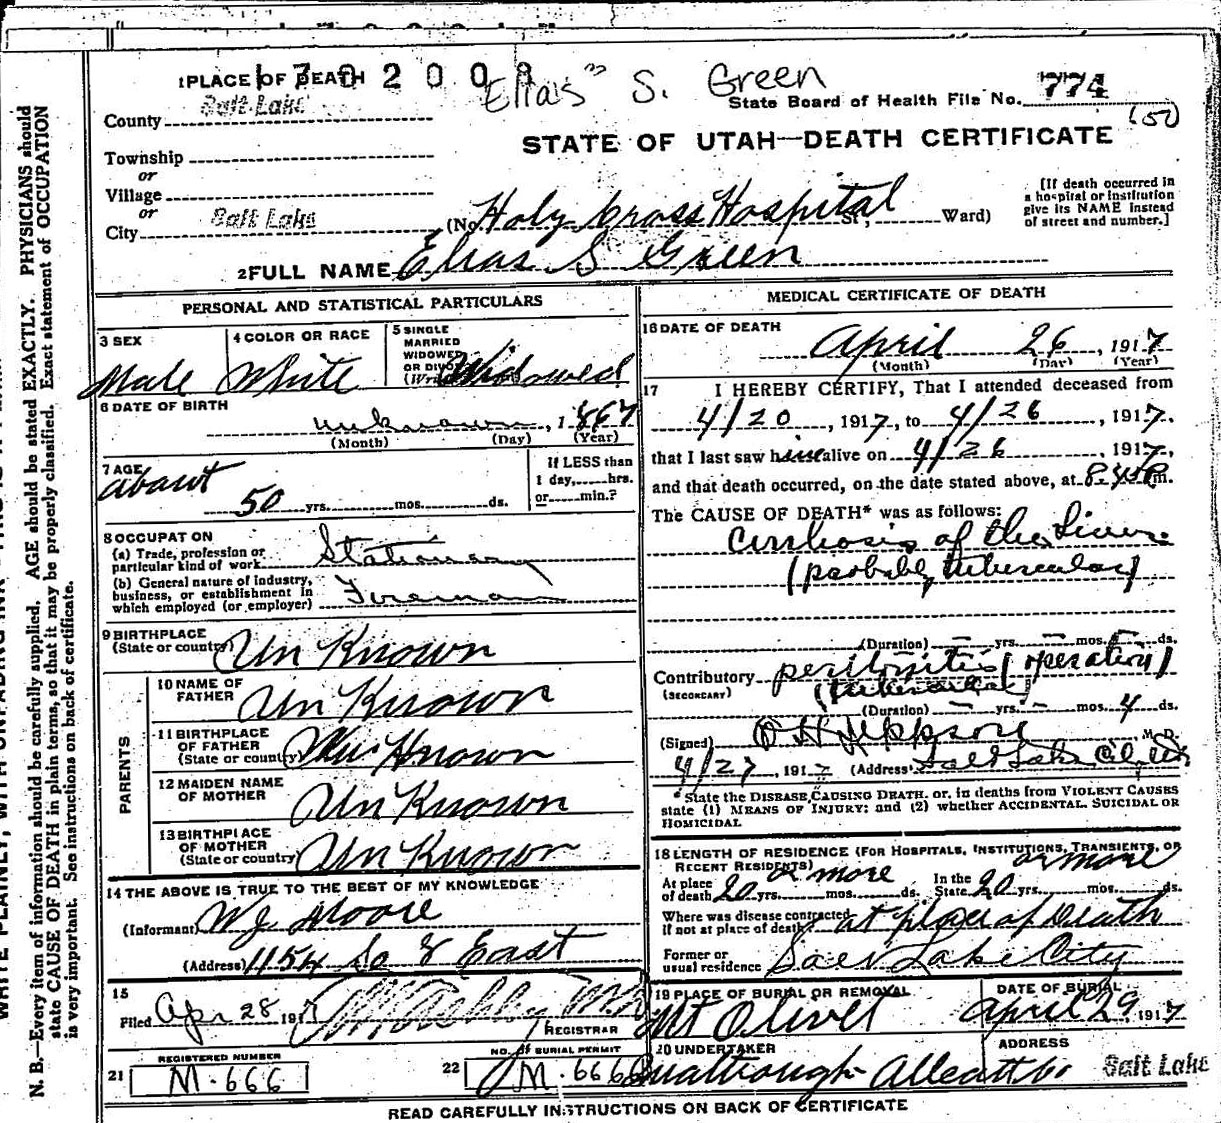 1 PLACE OF DEATH
Elias S. Green
State Board of Health File No. 774
(50)
County Salt Lake
STATE OF UTAH—DEATH CERTIFICATE
Township
or
Village
or
City Salt Lake
(No. Holy Cross Hospital St., Ward)
[If death occurred in
a hospital or institution
give its NAME instead
of street and number.]
2 FULL NAME Elias S Green
PERSONAL AND STATISTICAL PARTICULARS
3 SEX
Male
4 COLOR OR RACE
White
5 SINGLE
MARRIED
WIDOWED
OR DIVORCED
Widowed
6 DATE OF BIRTH
unknown, 1867
(Month) (Day) (Year)
7 AGE
about
50 yrs. mos. ds.
If LESS than
1 day, hrs.
or min.?
8 OCCUPATION
(a) Trade, profession or
particular kind of work Stationary
(b) General nature of industry,
business, or establishment in
which employed (or employer) Fireman
9 BIRTHPLACE
(State or country) Un Known
PARENTS
10 NAME OF
FATHER Un Known
11 BIRTHPLACE
OF FATHER
(State or country) Un Known
12 MAIDEN NAME
OF MOTHER Un Known
13 BIRTHPLACE
OF MOTHER
(State or country) Un Known
14 THE ABOVE IS TRUE TO THE BEST OF MY KNOWLEDGE
(Informant) W J Moore
(Address) 1154 So 8 East
15
Filed Apr 28 1917
REGISTRAR
REGISTERED NUMBER
21 M-666
NO. OF BURIAL PERMIT
22 M-666
MEDICAL CERTIFICATE OF DEATH
16 DATE OF DEATH
April 26, 1917
(Month) (Day) (Year)
17 I HEREBY CERTIFY, That I attended deceased from
4/20, 1917, to 4/26, 1917.
that I last saw him alive on 4/26, 1917,
and that death occurred, on the date stated above, at m.
The CAUSE OF DEATH* was as follows:
Cirrhosis of the Liver.
(probably tubercular)
(Duration) — yrs. — mos. — ds.
Contributory peritonitis (operation)
(SECONDARY) (tubercular)
(Duration) — yrs. — mos. 4 ds.
(Signed) M. D.
4/27, 1917 (Address) Salt Lake City
*State the DISEASE CAUSING DEATH, or, in deaths from VIOLENT CAUSES
state (1) MEANS OF INJURY; and (2) whether ACCIDENTAL, SUICIDAL OR
HOMICIDAL
18 LENGTH OF RESIDENCE (FOR HOSPITALS, INSTITUTIONS, TRANSIENTS, OR
RECENT RESIDENTS)
At place
of death 20 yrs. or more mos. ds. In the
State 20 yrs. or more mos. ds.
Where was disease contracted
if not at place of death? at place of Death
Former or
usual residence Salt Lake City
19 PLACE OF BURIAL OR REMOVAL
Mt Olivet
DATE OF BURIAL
April 29, 1917
20 UNDERTAKER
ADDRESS
Salt Lake
READ CAREFULLY INSTRUCTIONS ON BACK OF CERTIFICATE
N. B.—Every item of information should be carefully supplied. AGE should be stated EXACTLY. PHYSICIANS should
state CAUSE OF DEATH in plain terms, so that it may be properly classified. Exact statement of OCCUPATION
is very important. See instructions on back of certificate.